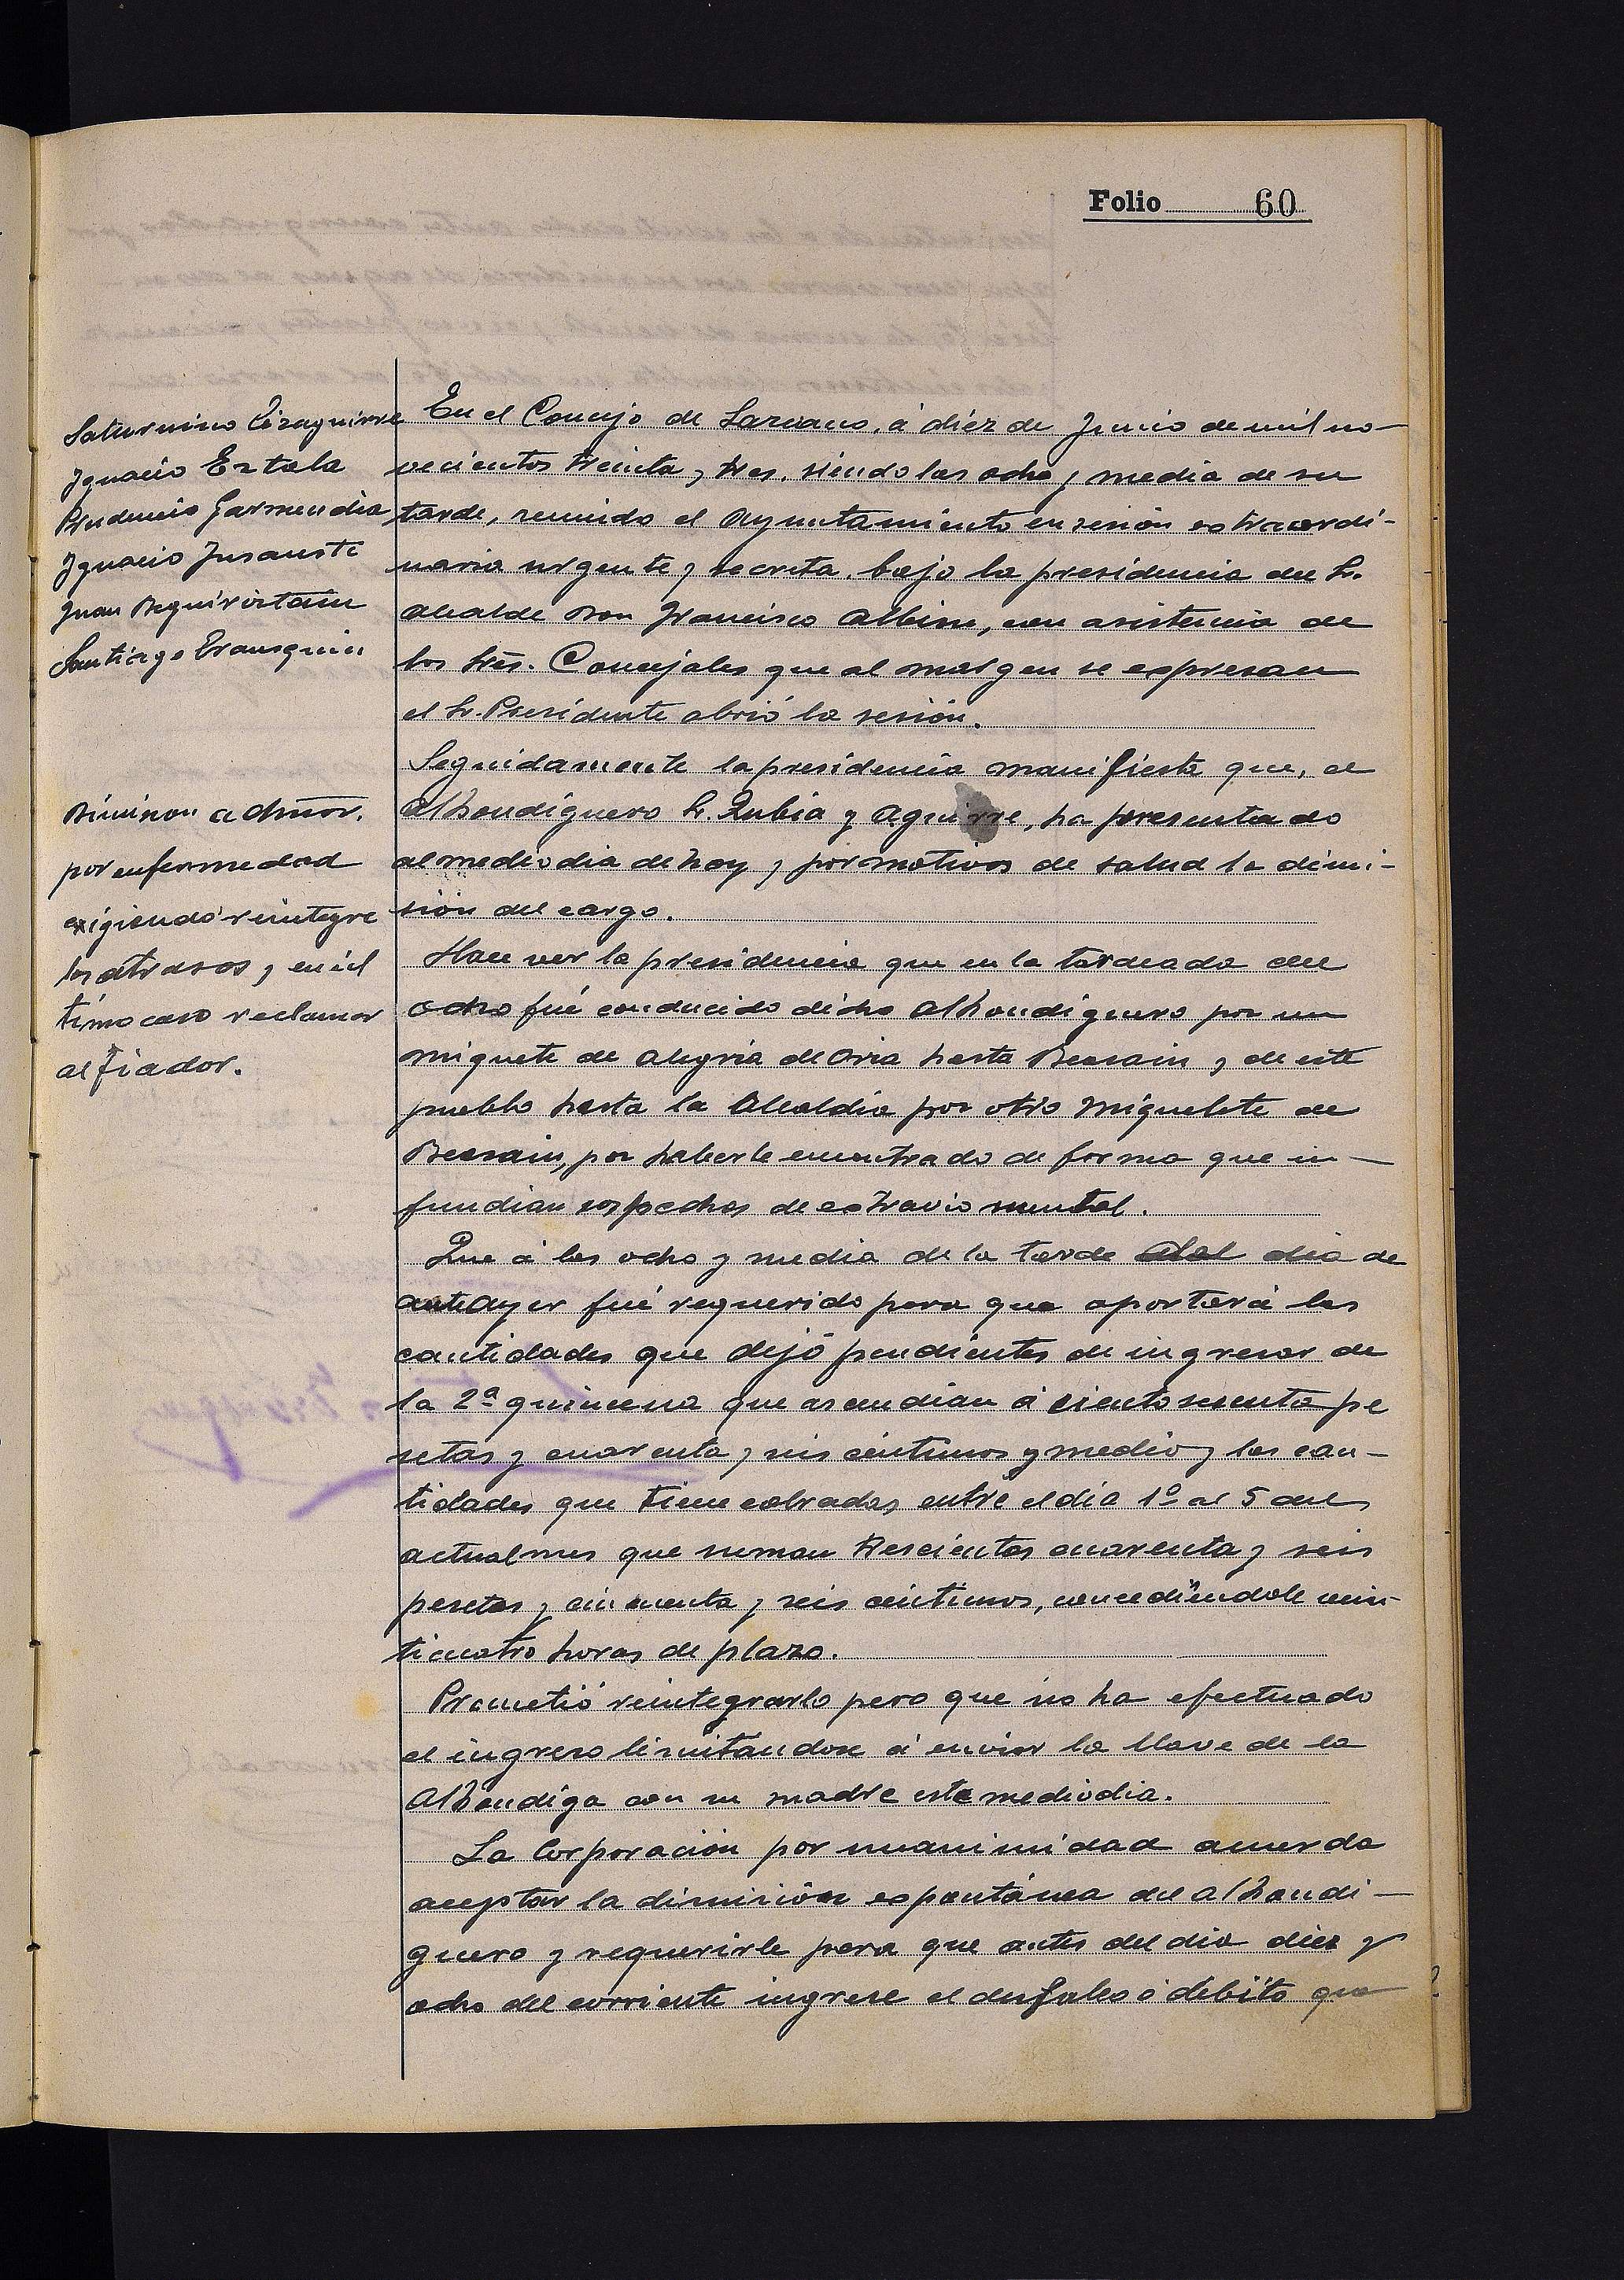 Folio 60
Saturnino Eizaguirre
Ignacio Eztala
Prudencio Garmendia
Ignacio Insausti
Juan Beguiristain
Santiago Erausquin
Dimision admor.
por enfermedad
exigiendo reintegre
los atrasos, y en úl
timo caso reclamar
al fiador.
En el Concejo de Lazcano, á diez de Junio de mil no-
vecientos treinta y tres, siendo las ocho y media de su
tarde, reunido el Ayuntamiento en sesión extraordi-
naria urgente y secreta, bajo la presidencia del Sr.
Alcalde Don Francisco Albisu, con asistencia de
los Sres. Concejales que al margen se expresan
el Sr. Presidente abrió la sesión.
Seguidamente la presidencia manifiesta que, el
Alhondiguero Sr. Zubia y Aguirre, ha presentado
al mediodia de hoy y por motivos de salud la dimi-
sión del cargo.
Hace ver la presidencia que en la tardeada del
ocho fué conducido dicho Alhondiguero por un
miquete de Alegria de Oria hasta Beasain y de este
pueblo hasta la Alcaldia por otro miquelete de
Beasain, por haberle encontrado de forma que in-
fundian sospechas de extravio mental.
Que á las ocho y media de la tarde del dia de
anteayer fué requerido para que aportará las
cantidades que dejó pendientes de ingresar de
la 2ª quincena que ascendian á ciento sesenta pe
setas y cuarenta y seis céntimos y medio y las can-
tidades que tiene cobradas entre el dia 1º al 5 del
actual mes que suman trescientas cuarenta y seis
pesetas y cincuenta y seis céntimos, concediéndole vein-
ticuatro horas de plazo.
Prometió reintegrarlo pero que no ha efectuado
el ingreso limitandose á enviar la llave de la
Alhondiga con su madre este mediodia.
La Corporación por unanimidad acuerda
aceptar la dimisión espontánea del Alhondi-
guero y requerirle para que antes del dia diez y
ocho del corriente ingrese el desfalco ó débito que